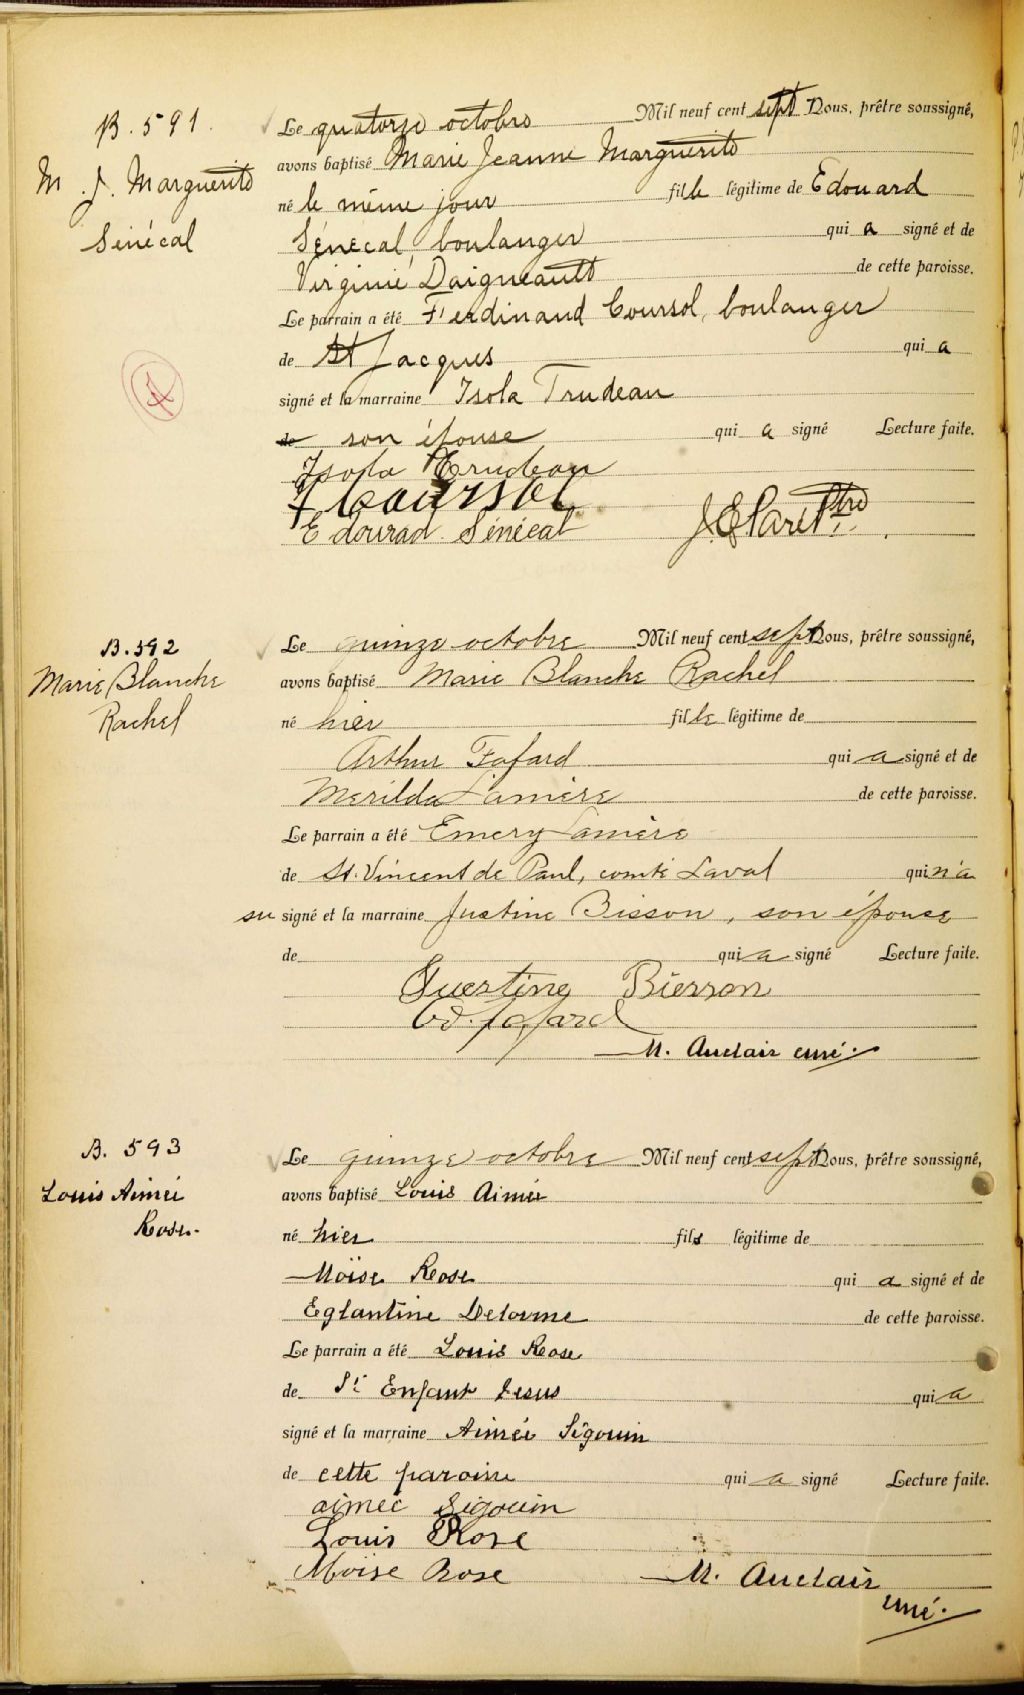 B. 591.
M. J. Marguerite
Sénécal
Le quatorze octobre Mil neuf cent sept Nous, prêtre soussigné,
avons baptisé Marie Jeanne Marguerite
né le même jour fille légitime de Edouard
Sénécal, boulanger qui a signé et de
Virginie Daigneault de cette paroisse.
Le parrain a été Ferdinand Coursol, boulanger
de St Jacques qui a
signé et la marraine Isola Trudeau
de son épouse qui a signé Lecture faite.
Isola Trudeau
F Coursol
Edourad Sénécal J. E. Paré Ptre
B. 592
Marie Blanche
Rachel
Le quinze octobre Mil neuf cent sept Nous, prêtre soussigné,
avons baptisé Marie Blanche Rachel
né hier fille légitime de
Arthur Fafard qui a signé et de
Merilda Lamère de cette paroisse.
Le parrain a été Emery Lamère
de St. Vincent de Paul, comté Laval qui n'a
su signé et la marraine Justine Bisson, son épouse
de qui a signé Lecture faite.
Juestine Biesson
fafard
M. Auclair curé.
B. 593
Louis Aimée
Rose.
Le quinze octobre Mil neuf cent sept Nous, prêtre soussigné,
avons baptisé Louis Aimée
né hier fils légitime de
Moïse Rose qui a signé et de
Eglantine Delorme de cette paroisse.
Le parrain a été Louis Rose
de St Enfant Jesus qui a
signé et la marraine Aimée Sigouin
de cette paroisse qui a signé Lecture faite.
aimée Sigouin
Louis Rose
Moise Rose M. Auclair
curé.